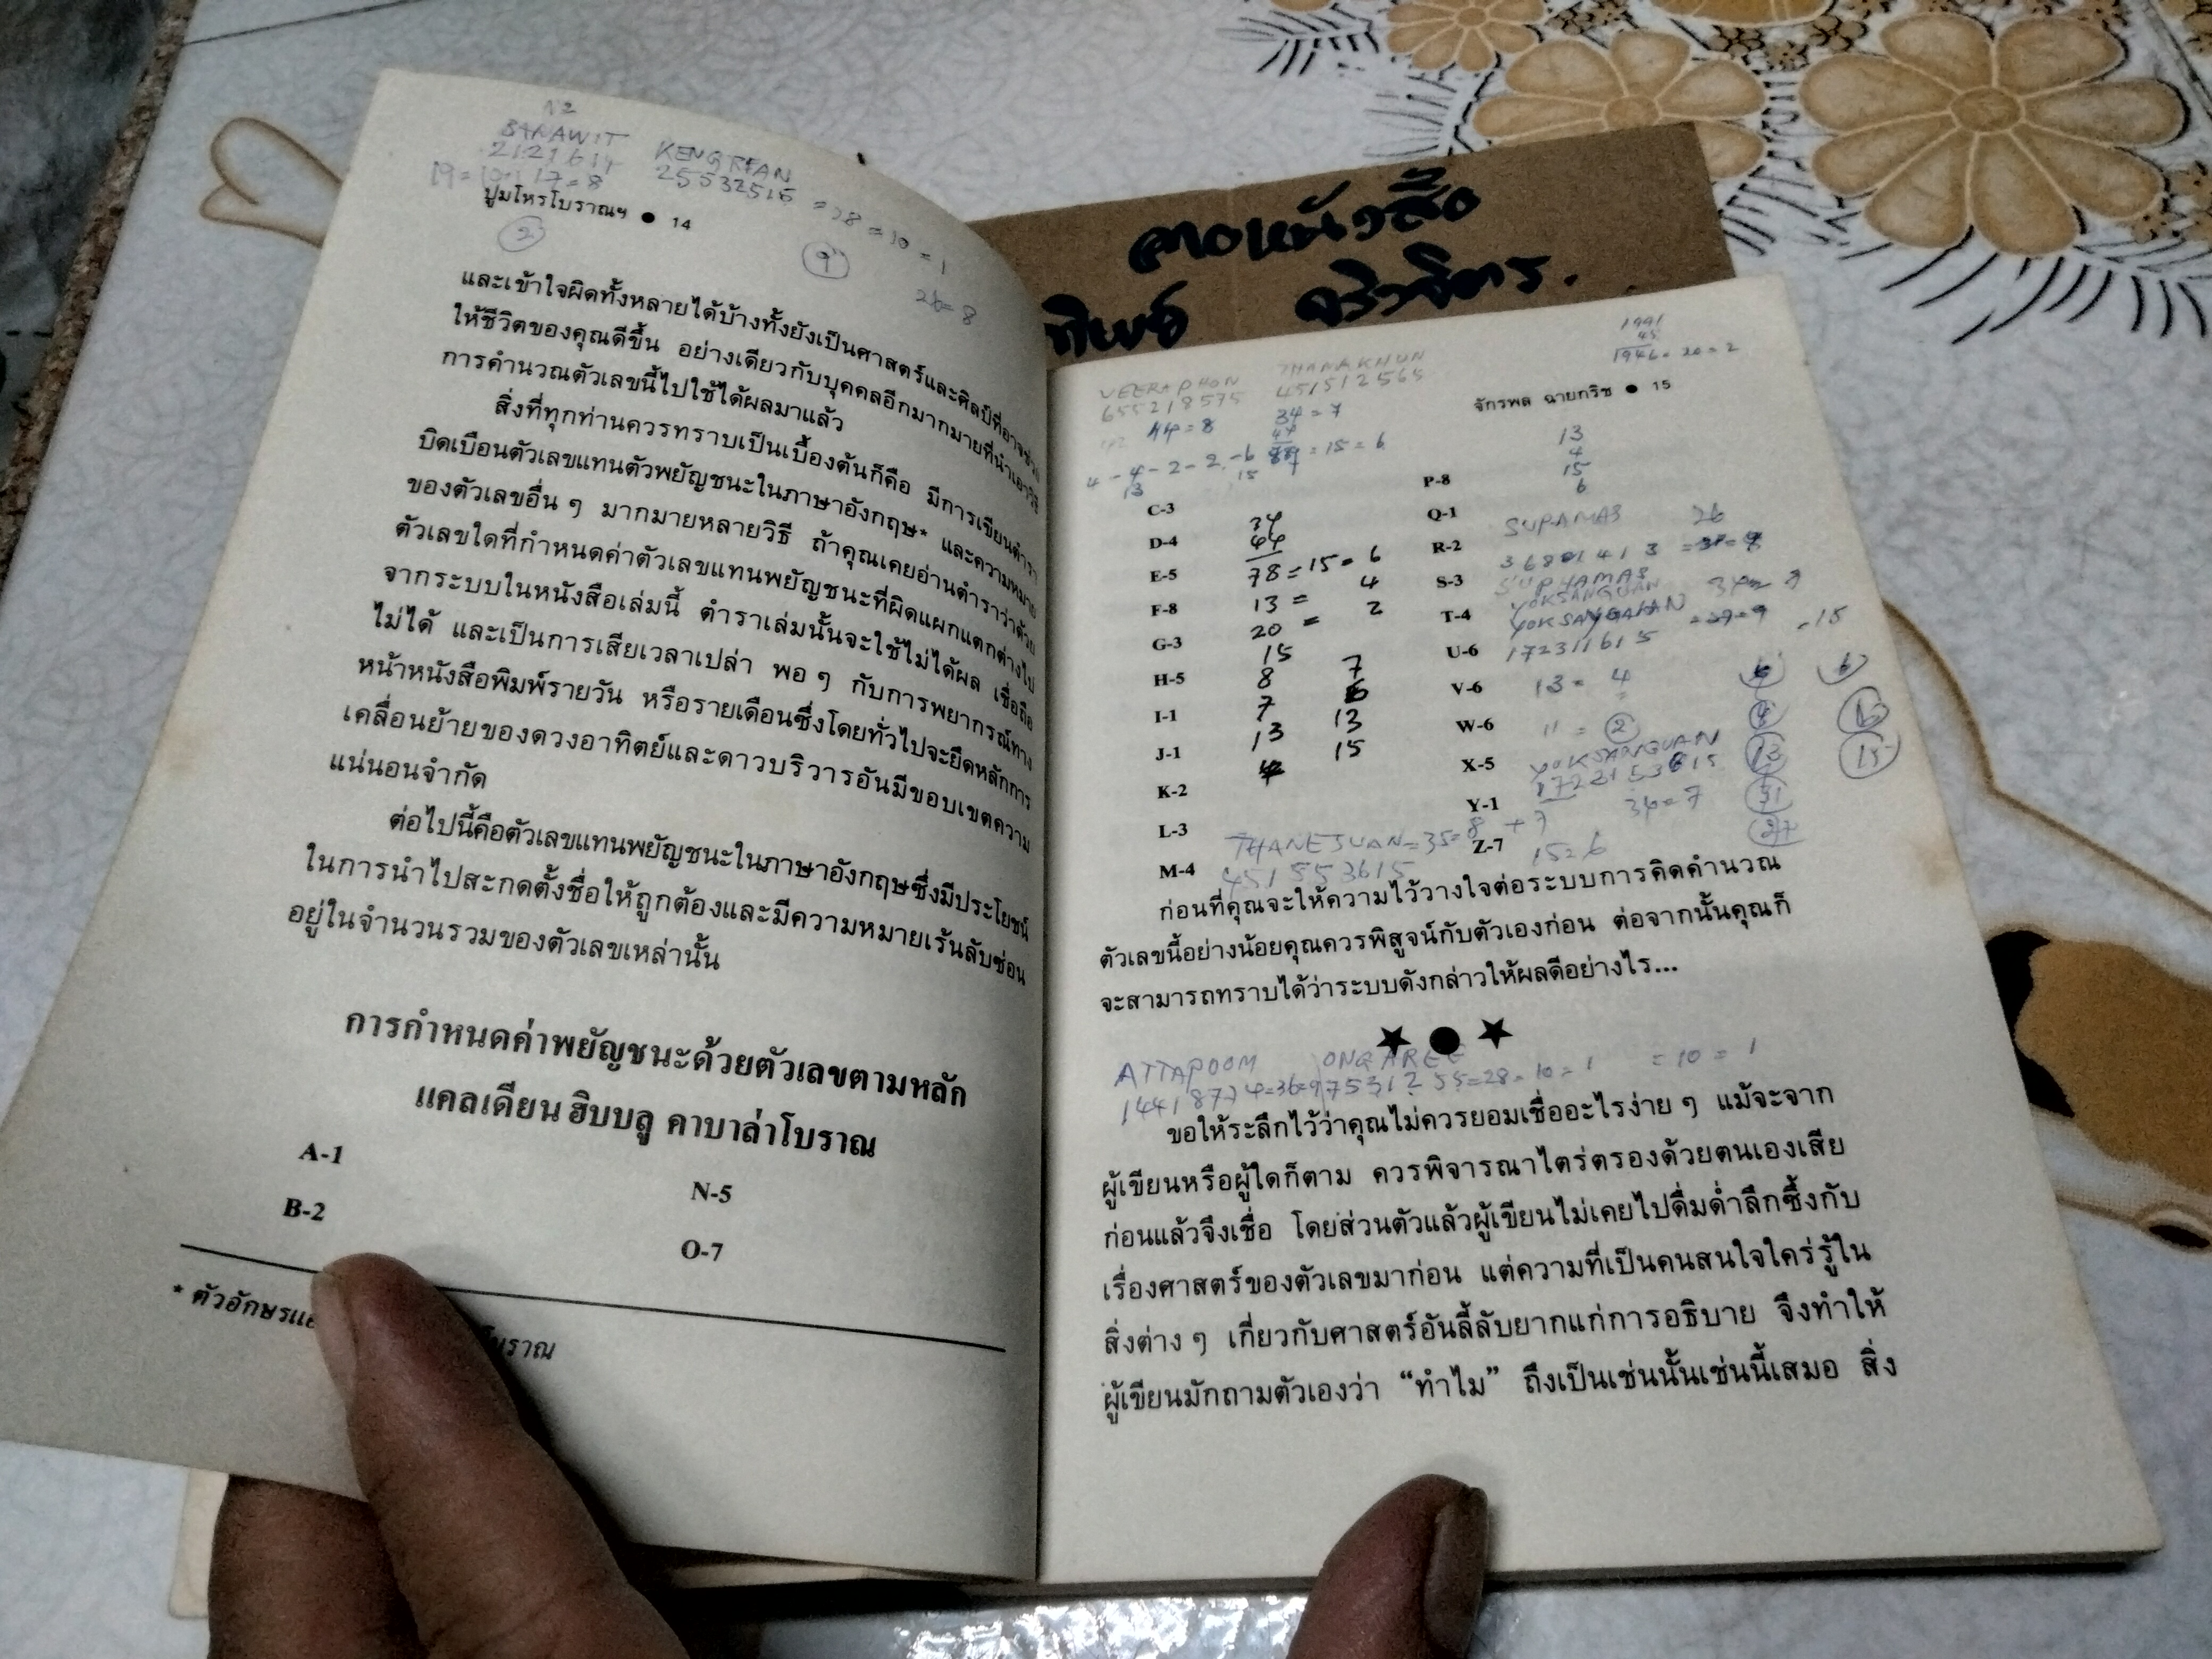 BANAWIT KENGREAN
25532515
= 28 = 10 = 1
17 = 8
ปูมโหรโบราณฯ ● 14
2
9
26 = 8
และเข้าใจผิดทั้งหลายได้บ้างทั้งยังเป็นศาสตร์และศิลป์ที่อาจช่วย
ให้ชีวิตของคุณดีขึ้น อย่างเดียวกับบุคคลอีกมากมายที่นำเอาวิธี
การคำนวณตัวเลขนี้ไปใช้ได้ผลมาแล้ว
สิ่งที่ทุกท่านควรทราบเป็นเบื้องต้นก็คือ มีการเขียนตำรา
บิดเบือนตัวเลขแทนตัวพยัญชนะในภาษาอังกฤษ* และความหมาย
ของตัวเลขอื่น ๆ มากมายหลายวิธี ถ้าคุณเคยอ่านตำราว่าด้วย
ตัวเลขใดที่กำหนดค่าตัวเลขแทนพยัญชนะที่ผิดแผกแตกต่างไป
จากระบบในหนังสือเล่มนี้ ตำราเล่มนั้นจะใช้ไม่ได้ผล เชื่อถือ
ไม่ได้ และเป็นการเสียเวลาเปล่า พอ ๆ กับการพยากรณ์ทาง
หน้าหนังสือพิมพ์รายวัน หรือรายเดือนซึ่งโดยทั่วไปจะยึดหลักการ
เคลื่อนย้ายของดวงอาทิตย์และดาวบริวารอันมีขอบเขตความ
แน่นอนจำกัด
ต่อไปนี้คือตัวเลขแทนพยัญชนะในภาษาอังกฤษซึ่งมีประโยชน์
ในการนำไปสะกดตั้งชื่อให้ถูกต้องและมีความหมายเร้นลับซ่อน
อยู่ในจำนวนรวมของตัวเลขเหล่านั้น
การกำหนดค่าพยัญชนะด้วยตัวเลขตามหลัก
แคลเดียน ฮิบบลู คาบาล่าโบราณ
A-1 N-5
B-2 O-7
* ตัวอักษร โบราณ
VEERAPHON THANAKHUN
655218575 451512565
44 = 8 34 = 7
= 15 = 6
1991
45
1946 = 20 = 2
จักรพล ฉายกริช ● 15
13
4
15
6
C-3 P-8
D-4 Q-1
E-5 R-2
F-8 S-3
G-3 T-4
H-5 U-6
I-1 V-6
J-1 W-6
K-2 X-5
L-3 Y-1
M-4 Z-7
34
44
78 = 15 = 6
13 = 4
20 = 2
15
8 7
7 6
13 13
15
SUPAMAS 26
SUPHAMAS
YOKSANGUAN
172311615
13 = 4
11 = 2
YOKSANGUAN
34 = 7
15 = 6
THANEJUAN = 35 = 8 + 7
451553615
ก่อนที่คุณจะให้ความไว้วางใจต่อระบบการคิดคำนวณ
ตัวเลขนี้อย่างน้อยคุณควรพิสูจน์กับตัวเองก่อน ต่อจากนั้นคุณก็
จะสามารถทราบได้ว่าระบบดังกล่าวให้ผลดีอย่างไร...
★ ● ★
ATTAPOOM ONGAREE = 10 = 1
14418774 = 36 = 9 7531255 = 28 = 10 = 1
ขอให้ระลึกไว้ว่าคุณไม่ควรยอมเชื่ออะไรง่าย ๆ แม้จะจาก
ผู้เขียนหรือผู้ใดก็ตาม ควรพิจารณาไตร่ตรองด้วยตนเองเสีย
ก่อนแล้วจึงเชื่อ โดยส่วนตัวแล้วผู้เขียนไม่เคยไปดื่มด่ำลึกซึ้งกับ
เรื่องศาสตร์ของตัวเลขมาก่อน แต่ความที่เป็นคนสนใจใคร่รู้ใน
สิ่งต่าง ๆ เกี่ยวกับศาสตร์อันลี้ลับยากแก่การอธิบาย จึงทำให้
ผู้เขียนมักถามตัวเองว่า “ทำไม” ถึงเป็นเช่นนั้นเช่นนี้เสมอ สิ่ง